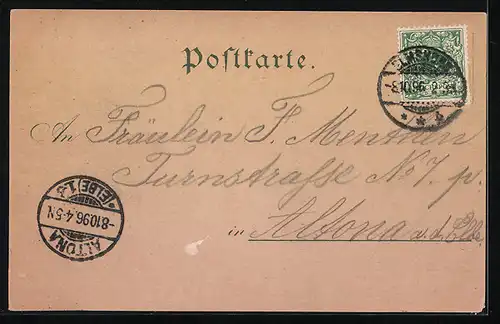 Postkarte.
An Fräulein F. Menthen
Turnstrasse No 7. p.
in Altona a. d. Elbe.
8.10.96
ALTONA
(ELBE) 1.3
-8.10.96.4-5N.